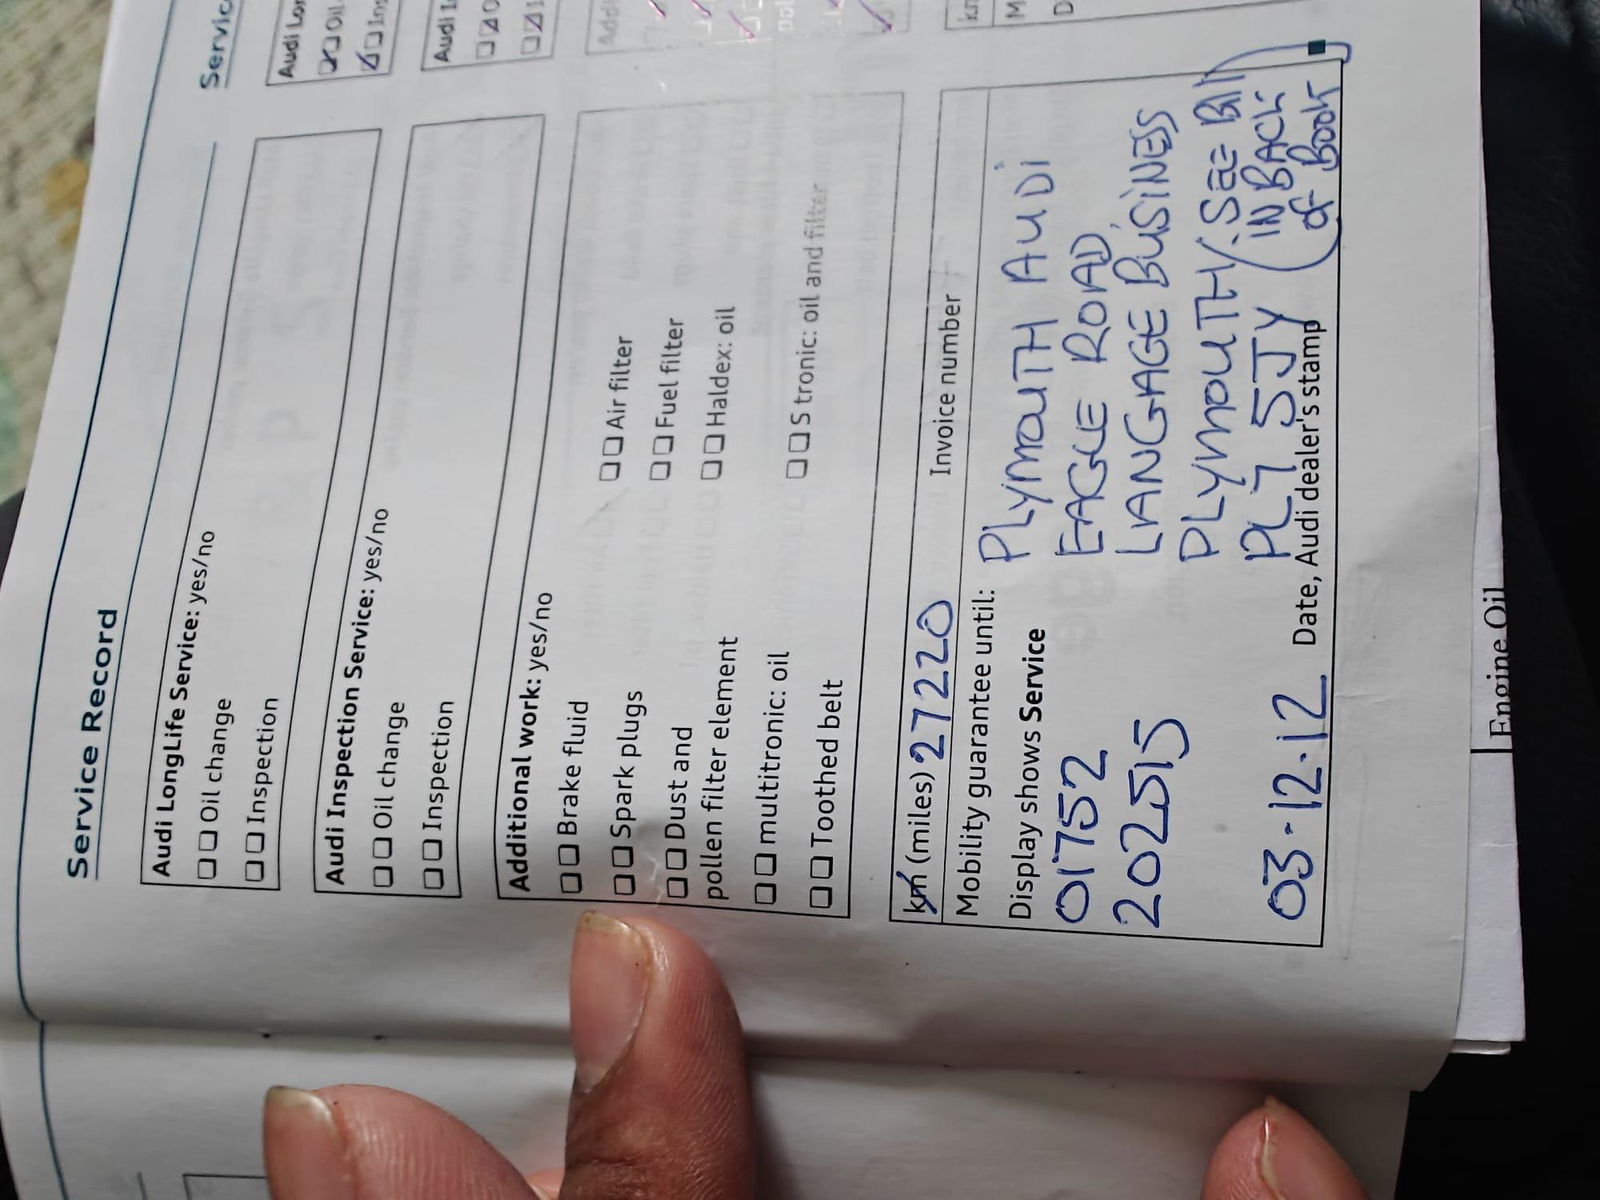 Service Record
Audi LongLife Service: yes/no
Oil change
Inspection
Audi Inspection Service: yes/no
Oil change
Inspection
Additional work: yes/no
Brake fluid
Spark plugs
Dust and
pollen filter element
multitronic: oil
Toothed belt
Air filter
Fuel filter
Haldex: oil
S tronic: oil and filter
km (miles) 27220 Invoice number
Mobility guarantee until:
Display shows Service
01752
202515
03-12-12
PLYMOUTH AUDI
EAGLE ROAD,
LANGAGE BUSINESS
PLYMOUTH
PL7 5JY
(SEE Bill
IN BACK
of Book
Date, Audi dealer's stamp
Engine Oil
Service
Audi Lon
Oil
Ins
Audi I
Addi
km
M
D